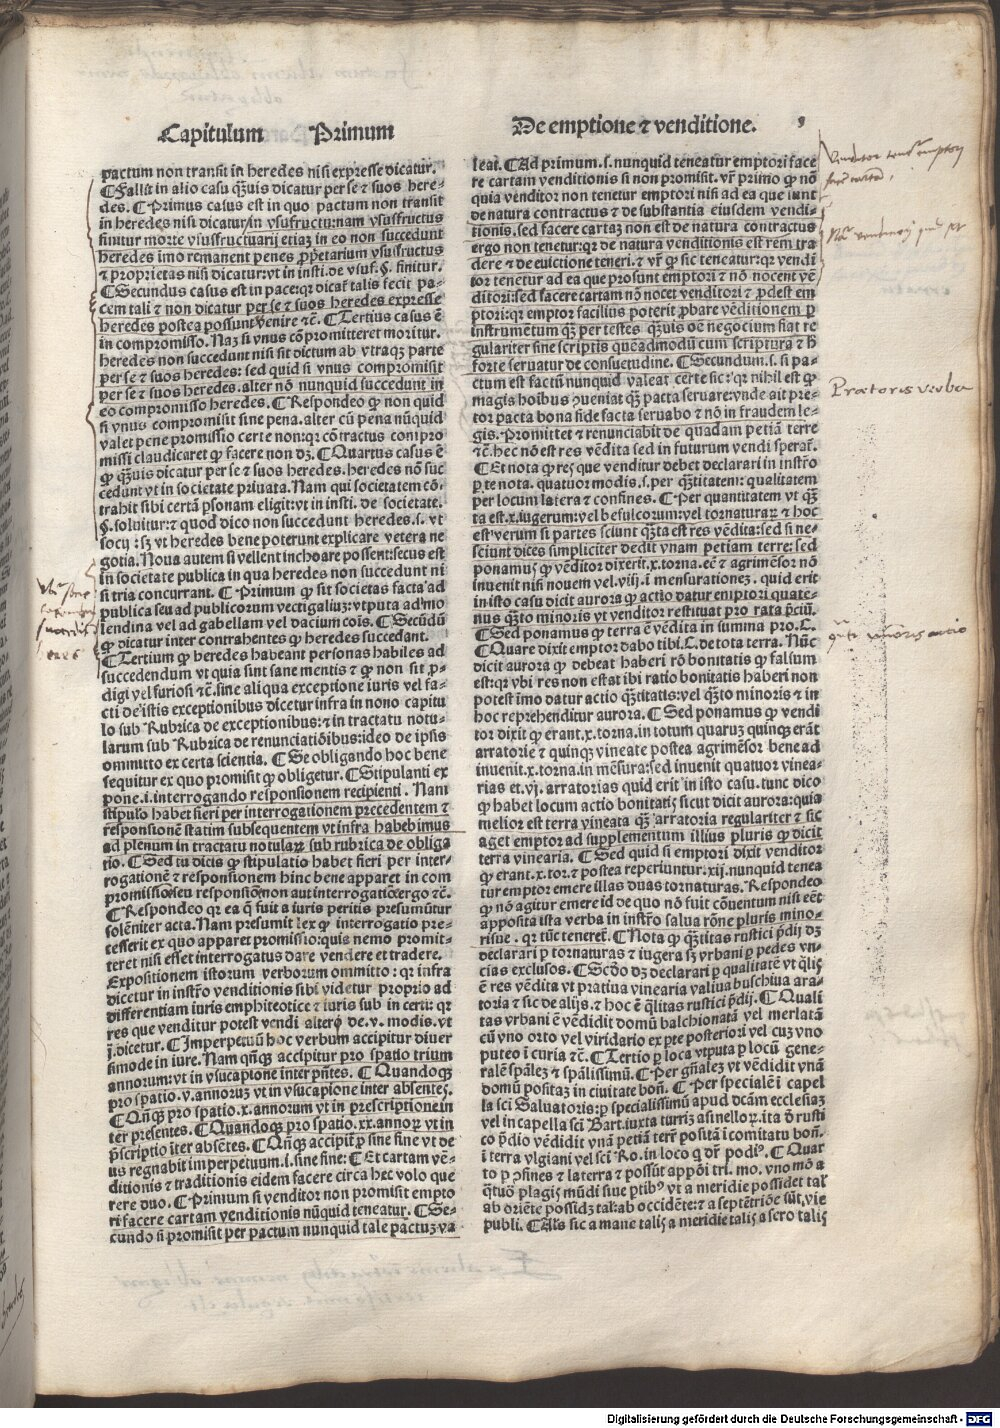 Capitulum Primum
De emptione ⁊ venditione. 3
pactum non transit in heredes nisi expresse dicatur.
¶ Fallit in alio casu qȝuis dicatur per se ⁊ suos here-
des. ¶ Primus casus est in quo pactum non transit
in heredes nisi dicatur in vsufructu: nam vsusfructus
finitur morte vsusfructuarij etiaȝ in eo non succedunt
heredes imo remanent penes ꝓpetarium vsusfructus
⁊ proprietas nisi dicatur: vt in insti. de vsuf. §. finitur.
¶ Secundus casus est in pace: qꝛ dicat̄ talis fecit pa-
cem tali ⁊ non dicatur per se ⁊ suos heredes expresse
heredes postea possunt venire ⁊c̄. ¶ Tertius casus ē
in compromisso. Naȝ si vnus cōpromitteret moritur.
heredes non succedunt nisi sit dictum ab vtraqȝ parte
per se ⁊ suos heredes: sed quid si vnus compromisit
per se ⁊ suos heredes. alter nō nunquid succedunt in
eo compromisso heredes. ¶ Respondeo ꝙ non quid
si vnus compromisit sine pena. alter cū pena nūquid
valet pene promissio certe non: qꝛ cōtractus compro
missi claudicaret ꝙ facere non dȝ. ¶ Quartus casus ē
ꝙ qȝuis dicatur per se ⁊ suos heredes. heredes nō suc
cedunt vt in societate priuata. Nam qui societatem cō-
trahit sibi certā ꝑsonam eligit: vt in insti. de societate.
§. soluitur: ⁊ quod dico non succedunt heredes. s. vt
socij: sȝ vt heredes bene poterunt explicare vetera ne
gotia. Noua autem si vellent inchoare possent: secus est
in societate publica in qua heredes non succedunt ni
si tria concurrant. ¶ Primum ꝙ sit societas facta ad
publica seu ad publicorum vectigaliuȝ: vtputa ad mo
lendina vel ad gabellam vel dacium cōis. ¶ Secūdū
ꝙ dicatur inter contrahentes ꝙ heredes succedant.
¶ Tertium ꝙ heredes habeant personas habiles ad
succedendum vt quia sint sane mentis ⁊ ꝙ non sit ꝓ-
digi vel furiosi ⁊c̄. sine aliqua exceptione iuris vel fa-
cti de istis exceptionibus dicetur infra in nono capitu
lo sub Rubrica de exceptionibus: ⁊ in tractatu notu-
larum sub Rubrica de renunciatiōibus: ideo de ipsis
ommitto ex certa scientia. ¶ Se obligando hoc bene
sequitur ex quo promisit ꝙ obligetur. ¶ Stipulanti ex
pone. i. interrogando responsionem recipienti. Nam
stipulo habet fieri per interrogationem precedentem ⁊
responsionē statim subsequentem vt infra habebimus
ad plenum in tractatu notularȝ sub rubrica de obliga
tio. ¶ Sed tu dicis ꝙ stipulatio habet fieri per inter-
rogationē ⁊ responsionem hinc bene apparet in com
promissio seu responsio non aut interrogatio ergo ⁊c̄.
¶ Respondeo qꝛ ea q̄ fuit a iuris peritis presumūtur
solēniter acta. Nam presumit lex ꝙ interrogatio pre-
cesserit ex quo apparet promissio: quia nemo promit-
teret nisi esset interrogatus dare vendere et tradere.
Expositionem istorum verborum ommitto: qꝛ infra
dicetur in instro venditionis sibi videtur proprio ad
differentiam iuris emphiteotice ⁊ iuris sub incerti: qꝛ
res que venditur potest vendi altero de. v. modis. vt
j. dicetur. ¶ Imperpetuū hoc verbum accipitur diuer
simode in iure. Nam qn̄qȝ accipitur pro spatio trium
annorum: vt in vsucapione inter pn̄tes. ¶ Quandoqȝ
pro spatio. v. annoruȝ vt in vsucapione inter absentes.
¶ Qn̄qȝ pro spatio. x. annorum vt in prescriptione in
ter presentes. ¶ Quandoqȝ pro spatio. xx. annoꝝ vt in
pscriptio iter absētes. ¶ Qn̄qȝ accipit̄ ꝑ sine fine vt de
us regnabit imperpetuum. i. sine fine: ¶ Et cartam vē-
ditionis ⁊ traditionis eidem facere circa hec volo que
rere duo. ¶ Primum si venditor non promisit empto
ri facere cartam venditionis nūquid teneatur. ¶ Se-
cundo si promisit per pactum nunquid tale pactuȝ va-
leat. ¶ Ad primum. s. nunquid teneatur emptori face
re cartam venditionis si non promisit. vr̄ primo ꝙ nō
quia venditor non tenetur emptori nisi ad ea que sunt
de natura contractus ⁊ de substantia eiusdem vendi-
tionis. sed facere cartaȝ non est de natura contractus
ergo non tenetur: qꝛ de natura venditionis est rem tra
dere ⁊ de euictione teneri. ⁊ vr̄ ꝙ sic teneatur: qꝛ vendi
tor tenetur ad ea que prosunt emptori ⁊ nō nocent vē
ditori: sed facere cartam nō nocet venditori ⁊ ꝓdest em
ptori: qꝛ emptor facilius poterit ꝓbare vēditionem ꝑ
instrumentum qȝ per testes qȝuis oē negocium fiat re
gulariter sine scriptis quēadmodū cum scriptura ⁊ h̄
forte seruatur de consuetudine. ¶ Secundum. s. si pa-
ctum est factū nunquid valeat certe sic: qꝛ nihil est ꝙ
magis hoībus ꝯueniat qȝ pacta seruare: vnde ait pre-
tor pacta bona fide facta seruabo ⁊ nō in fraudem le-
gis. Promittet ⁊ renunciabit de quadam petiā terre
⁊c̄. hec nō est res vēdita sed in futurum vendi sperat̄.
¶ Et nota ꝙ res que venditur debet declarari in instro
ꝑ te nota. quatuor modis. s. per qȝtitatem: qualitatem
per locum latera ⁊ confines. ¶ Per quantitatem vt qȝ
ta est. x. iugerum: vel befulcorum: vel tornaturaꝝ ⁊ hoc
est verum si partes sciunt qȝta est res vēdita: sed si ne-
sciunt dices simpliciter dedit vnam petiam terre: sed
ponamus ꝙ vēditor dixerit. x. torna. eē ⁊ agrimēsor nō
inuenit nisi nouem vel. viij. i mensurationeȝ. quid erit
in isto casu dicit aurora ꝙ actio datur emptori quate-
nus qȝto minoris vt venditor restituat pro rata pciū.
¶ Sed ponamus ꝙ terra ē vēdita in summa pro. C.
¶ Quare dixit emptor dabo tibi. C. de tota terra. Nūc
dicit aurora ꝙ debeat haberi rō bonitatis ꝙ falsum
est: qꝛ vbi res non est at ibi ratio bonitatis haberi non
potest imo datur actio qȝtitatis: vel qȝto minoris ⁊ in
hoc reprehenditur aurora. ¶ Sed ponamus ꝙ vendi
tor dixit ꝙ erant. x. torna. in totum quaruȝ quinqȝ erāt
arratorie ⁊ quinqȝ vineate postea agrimēsor bene ad
inuenit. x. torna. in mēsura: sed inuenit quatuor vinea-
rias et. vj. arratorias quid erit in isto casu. tunc dico
ꝙ habet locum actio bonitatis sicut dicit aurora: quia
melior est terra vineata qȝ arratoria regulariter ⁊ sic
aget emptor ad supplementum illius pluris ꝙ dicit
terra vinearia. ¶ Sed quid si emptori dixit venditor
ꝙ erant. x. tor. ⁊ postea reperiuntur. xij. nunquid tenea
tur emptor emere illas duas tornaturas. Respondeo
ꝙ nō agitur emere id de quo nō fuit cōuentum nisi eēt
apposita ista verba in instro salua rōne pluris mino-
risue. qꝛ tūc teneret̄. ¶ Nota ꝙ qȝtitas rustici pdij dȝ
declarari ꝑ tornaturas ⁊ iugera sȝ vrbani ꝑ pedes vn-
cias exclusos. ¶ Scdo dȝ declarari ꝑ qualitatē vt qlis
ē res vēdita vt pratiua vinearia valiua buschiua ara-
toria ⁊ sic de alijs. ⁊ hoc ē qlitas rustici pdij. ¶ Quali
tas vrbani ē vēdidit domū balchionatā vel merlatā
cū vno orto vel viridario ex pte posteriori vel cuȝ vno
puteo i curia ⁊c̄. ¶ Tertio ꝑ loca vtputa ꝑ locū gene-
ralē spalēȝ ⁊ spalissimū. ¶ Per gnalez vt vēdidit vnā
domū positaȝ in ciuitate bon. ¶ Per specialē i capel
la sci Saluatoris: ꝑ specialissimū apud dcam ecclesiaȝ
vel in capella sci Bart. iuxta turriȝ asinelloꝝ. ita ō rusti
co pdio vēdidit vnā petiā terre positā i comitatu bon.
i terra vlgiani vel sci Ro. in loco q dr̄ podio. ¶ Quar
to ꝑ ꝯfines ⁊ latera ⁊ possūt appōi tri. mo. vno mō a
qtuo plagis mūdi siue ptibȝ vt a meridie possidet tal
ab oriēte possidȝ tal: ab occidēte: ⁊ a septētriōe sūt. vie
publi. ¶ Alo sic a mane talis a meridie talis a sero talis
Venditor tenet emptori
facere cartam.
Praetoris verba
quanti minoris actio
Digitalisierung gefördert durch die Deutsche Forschungsgemeinschaft - DFG